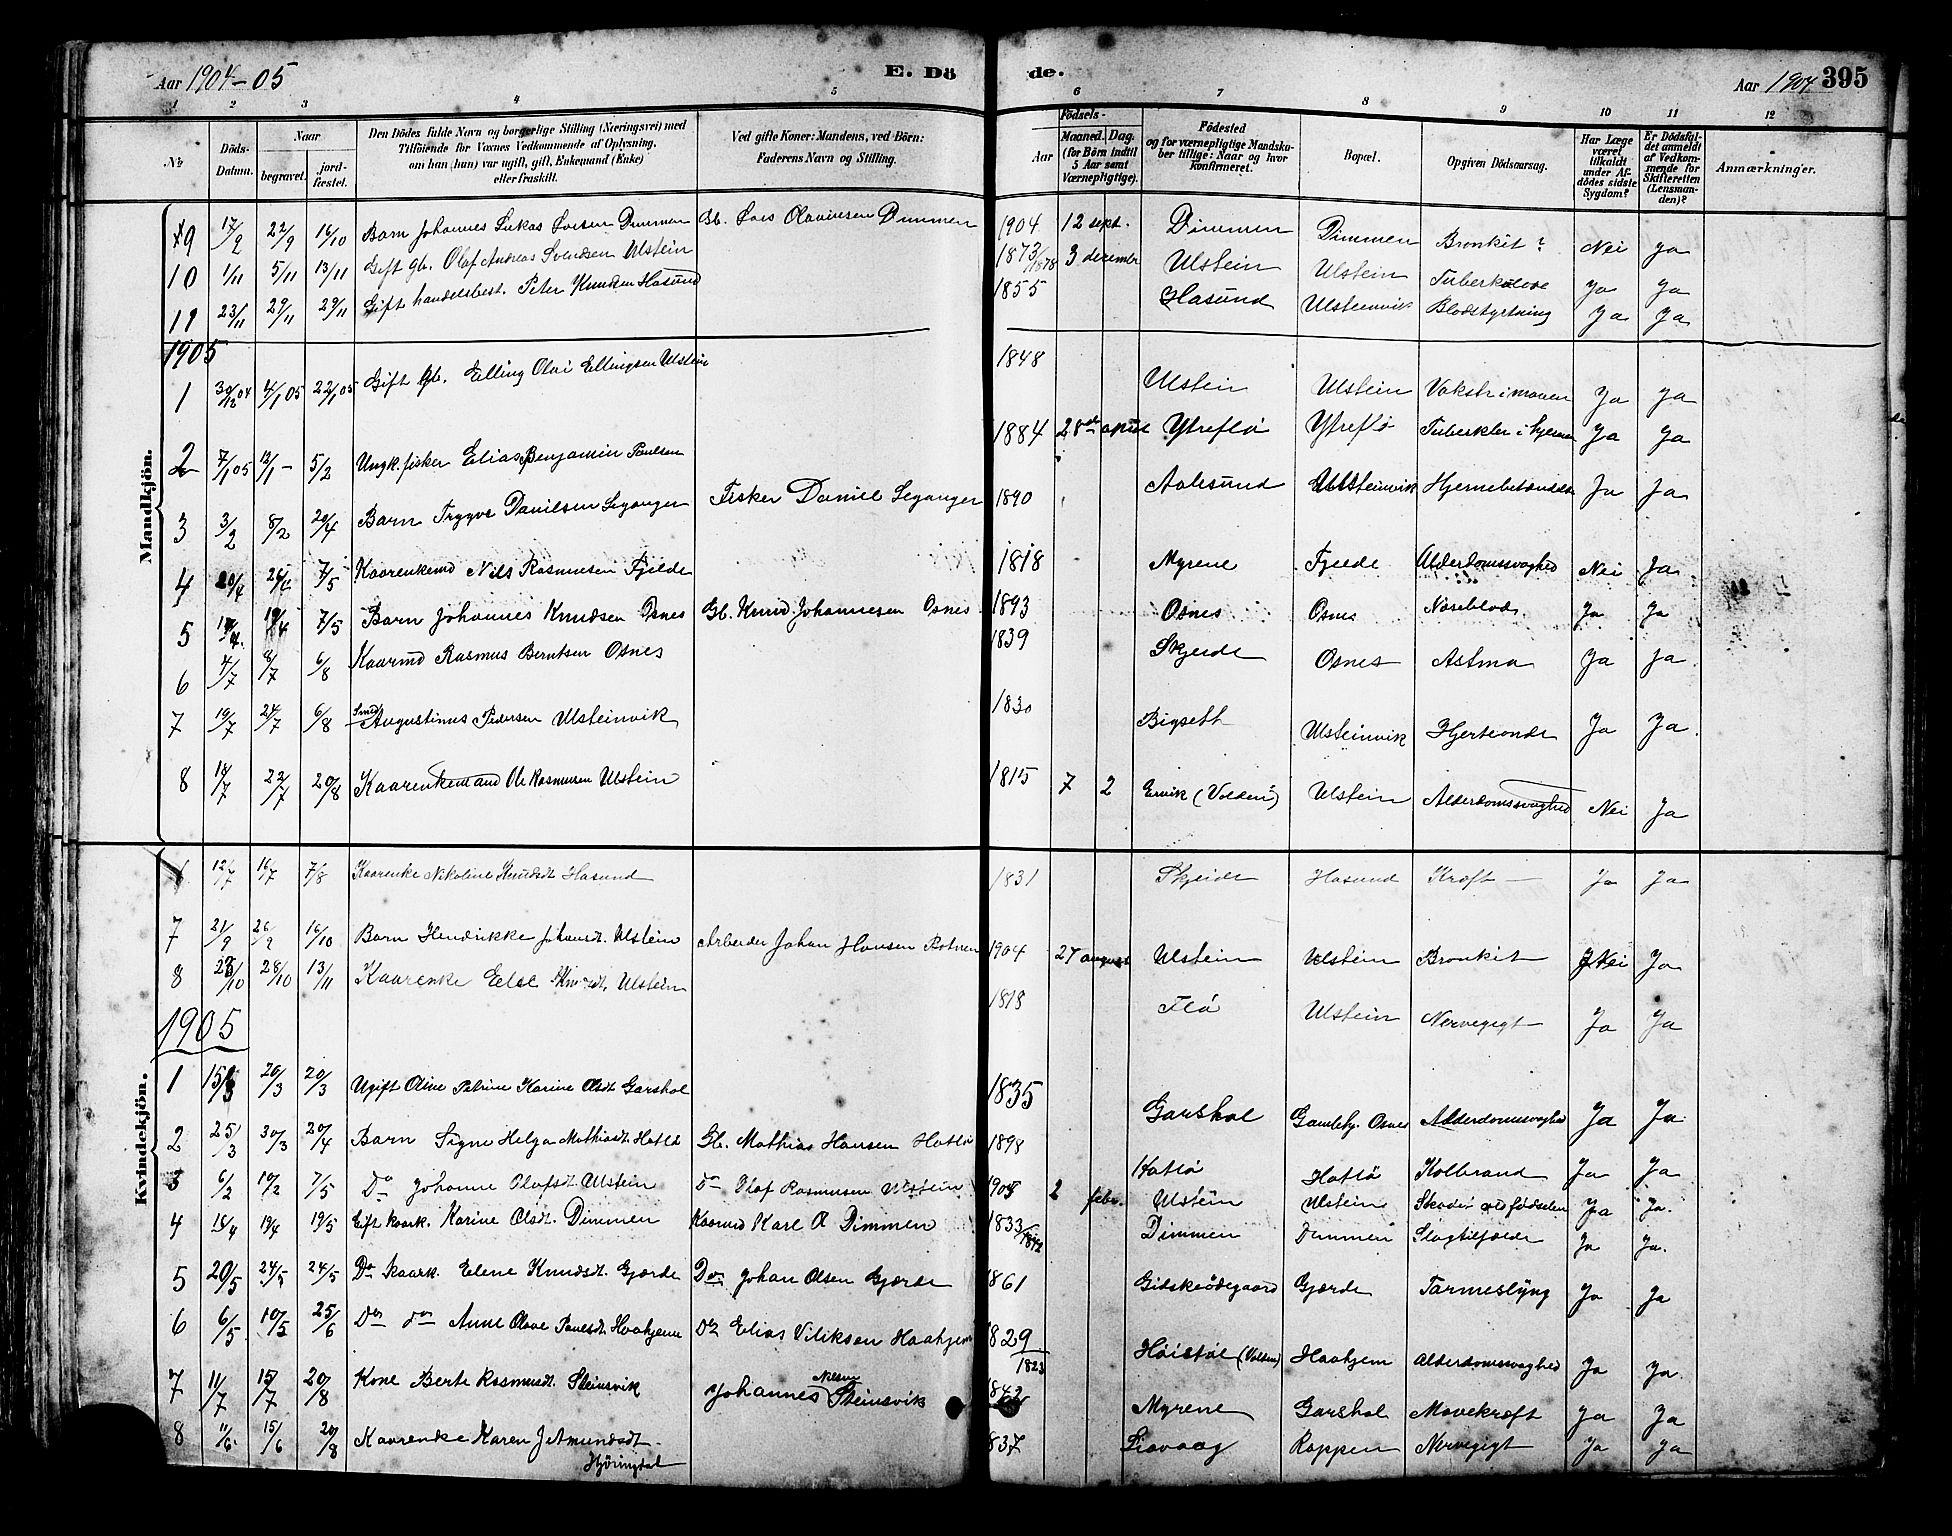 Aar 1904-05 E. Dö de. Aar 1904 395
1 2 3 4 5 6 7 8 9 10 11 12
No Döds-Datum. Naar begravet. jord-fæstet. Den Dödes fulde Navn og borgerlige Stilling (Næringsvei) med Tilföiende for Voxnes Vedkommende af Oplysning, om han (hun) var ugift, gift, Enkemand (Enke) eller fraskilt. Ved gifte Koner: Mandens, ved Börn: Faderens Navn og Stilling. Födsels- Aar Maaned. Dag. (for Börn indtil 5 Aar samt Værnepligtige). Födested og for værnepligtige Mandskaber tillige: Naar og hvor konfirmeret. Bopæl. Opgiven Dödsaarsag. Har Læge været tilkaldt under Afdödes sidste Sygdom? Er Dödsfaldet anmeldt af Vedkommende for Skifteretten (Lensmanden)? Anmærkninger.
Mandkjön.
9 17/9 22/9 16/10 Barn Johannes Lukas Dimmen Gb. Olavinsen Dimmen 1904 12 sept. Dimmen Dimmen Bronkit? Nei Ja
10 1/11 5/11 13/11 Gift Gb. Olaf Andreas Svendsen Ulstein 1873/1878 3 december Ulstein Ulstein Tuberkulose Ja Ja
11 23/11 29/11 29/11 Gift handelsbest. Peter Knudsen Hasund 1855 Hasund Ulsteinvik Blodstyrtning Ja Ja
1905
1 30/12 04 4/1 05 22/1 05 Gift Gb. Elling Olai Ellingsen Ulstein 1848 Ulstein Ulstein Vekst i maven Ja Ja
2 7/1 05 12/1 - 5/2 Ungk. fisker Elias Benjamin Paulsen 1884 28de april Ytreflö Ytreflö Tuberkler i hjernen Ja Ja
3 3/2 8/2 20/4 Barn Trygve Danilsen Leganger Fisker Daniel Leganger 1890 Aalesund Ulsteinvik Hjernebetændelse Ja Ja
4 20/4 26/4 7/5 Kaarenkemd Nils Rasmusen Fjelde 1818 Myrene Fjelde Alderdomssvaghed Nei Ja
5 14/4 19/4 7/5 Barn Johannes Knudsen Osnes Gb. Knud Johannesen Osnes 1893 Osnes Osnes Næseblod Ja Ja
6 4/7 8/7 6/8 Kaarmd Rasmus Berntsen Osnes 1839 Skjeide Osnes Astma Ja Ja
7 19/7 24/7 6/8 Smed Augustinus Pedersen Ulsteinvik 1830 Bigsett Ulsteinvik Hjerteonde Ja Ja
8 18/7 22/7 20/8 Kaarenkemand Ole Rasmusen Ulstein 1815 7 2 Ervik (Volden) Ulstein Alderdomssvaghed Nei Ja
Kvindekjön.
12/7 16/7 7/8 Kaarenke Nikoline Knudsdt Hasund 1831 Skjeide Hasund Kræft Ja Ja
7 21/9 26/9 16/10 Barn Hendrikke Johansdt. Ulstein Arbeider Johan Hansen Botnen 1904 27 august Ulstein Ulstein Bronkit Nei Ja
8 23/10 28/10 13/11 Kaarenke Else Knudsdt. Ulstein 1818 Flö Ulstein Nervegigt Ja Ja
1905
1 15/3 20/3 20/3 Ugift Oline Petrine Karine Olsdt Garshol 1835 Garshol Gamlehj. Osnes Alderdomssvaghed Ja Ja
2 25/3 30/3 20/4 Barn Signe Helga Mathiasdt Hatlö Gb. Mathias Hansen Hatlö 1898 Hatlö Hatlö Kolbrand Ja Ja
3 6/2 10/2 7/5 Do Johanne Olafsdt Ulstein do Olaf Rasmusen Ulstein 1905 2 febr. Ulstein Ulstein Skade ved födselen Ja Ja.
4 15/4 19/4 19/5 Gift kaark. Karine Olsdt. Dimmen Kaarmd Karl A Dimmen 1833/1842 Dimmen Dimmen Slagtilfælde Ja Ja.
5 20/5 24/5 24/5 Do kaark. Elene Knudsdt. Gjærde Do Johan Olsen Gjærde 1861 Gidskeödegaard Gjærde Tarmeslyng Ja Ja
6 6/5 10/5 25/6 Do do Anne Olave Paulsdt. Haahjem Do Elias Viliksen Haahjem 1829/1823 Höistöl (Volden) Haahjem Alderdomssvaghed Ja Ja.
7 11/7 15/7 20/8 Kone Berte Rasmusdt. Steinsvik Johannes Nilsen Steinsvik Myrene Garshol Mavekræft Ja Ja
8 11/6 15/6 20/8 Kaarenke Karen J. Amundsdt. Hjöringdal 837 Liavaag Rappen Nervegigt Ja Ja